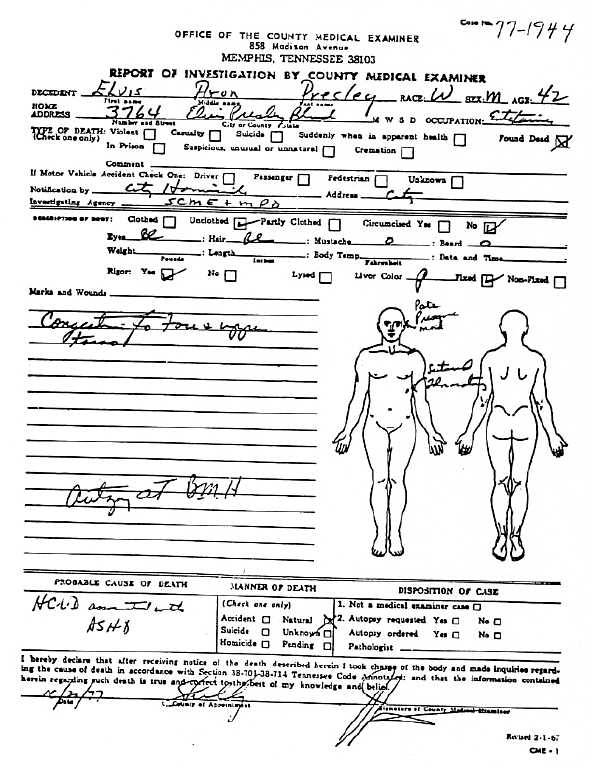 Case No. 77-1944
OFFICE OF THE COUNTY MEDICAL EXAMINER
858 Madison Avenue
MEMPHIS, TENNESSEE 38103
REPORT OF INVESTIGATION BY COUNTY MEDICAL EXAMINER
DECEDENT Elvis Aron Presley RACE: W SEX: M AGE: 42
First name Middle name Last name
HOME ADDRESS 3764 Elvis Presley Blvd M W S D OCCUPATION:
Number and Street City or County State
TYPE OF DEATH: Violent Casualty Suicide Suddenly when in apparent health Found Dead
(Check one only) In Prison Suspicious, unusual or unnatural Cremation
Comment
If Motor Vehicle Accident Check One: Driver Passenger Pedestrian Unknown
Notification by City Homicide Address City
Investigating Agency SCME + MPD
DESCRIPTION OF BODY: Clothed Unclothed Partly Clothed Circumcised Yes No
Eyes Bl : Hair Bl : Mustache 0 : Beard 0
Weight : Length : Body Temp. : Date and Time
Pounds Inches Fahrenheit
Rigor: Yes No Lysed Livor Color P Fixed Non-Fixed
Marks and Wounds
Congestion to face & upper
Autopsy at BMH
PROBABLE CAUSE OF DEATH
HCVD associated with
ASHD
MANNER OF DEATH
(Check one only)
Accident Natural
Suicide Unknown
Homicide Pending
DISPOSITION OF CASE
1. Not a medical examiner case
2. Autopsy requested Yes No
Autopsy ordered Yes No
Pathologist
I hereby declare that after receiving notice of the death described herein I took charge of the body and made inquiries regard-
ing the cause of death in accordance with Section 38-701-38-714 Tennessee Code Annotated; and that the information contained
herein regarding such death is true and correct to the best of my knowledge and belief.
Date County of Appointment Signature of County Medical Examiner
Revised 2-1-67
CME - 1